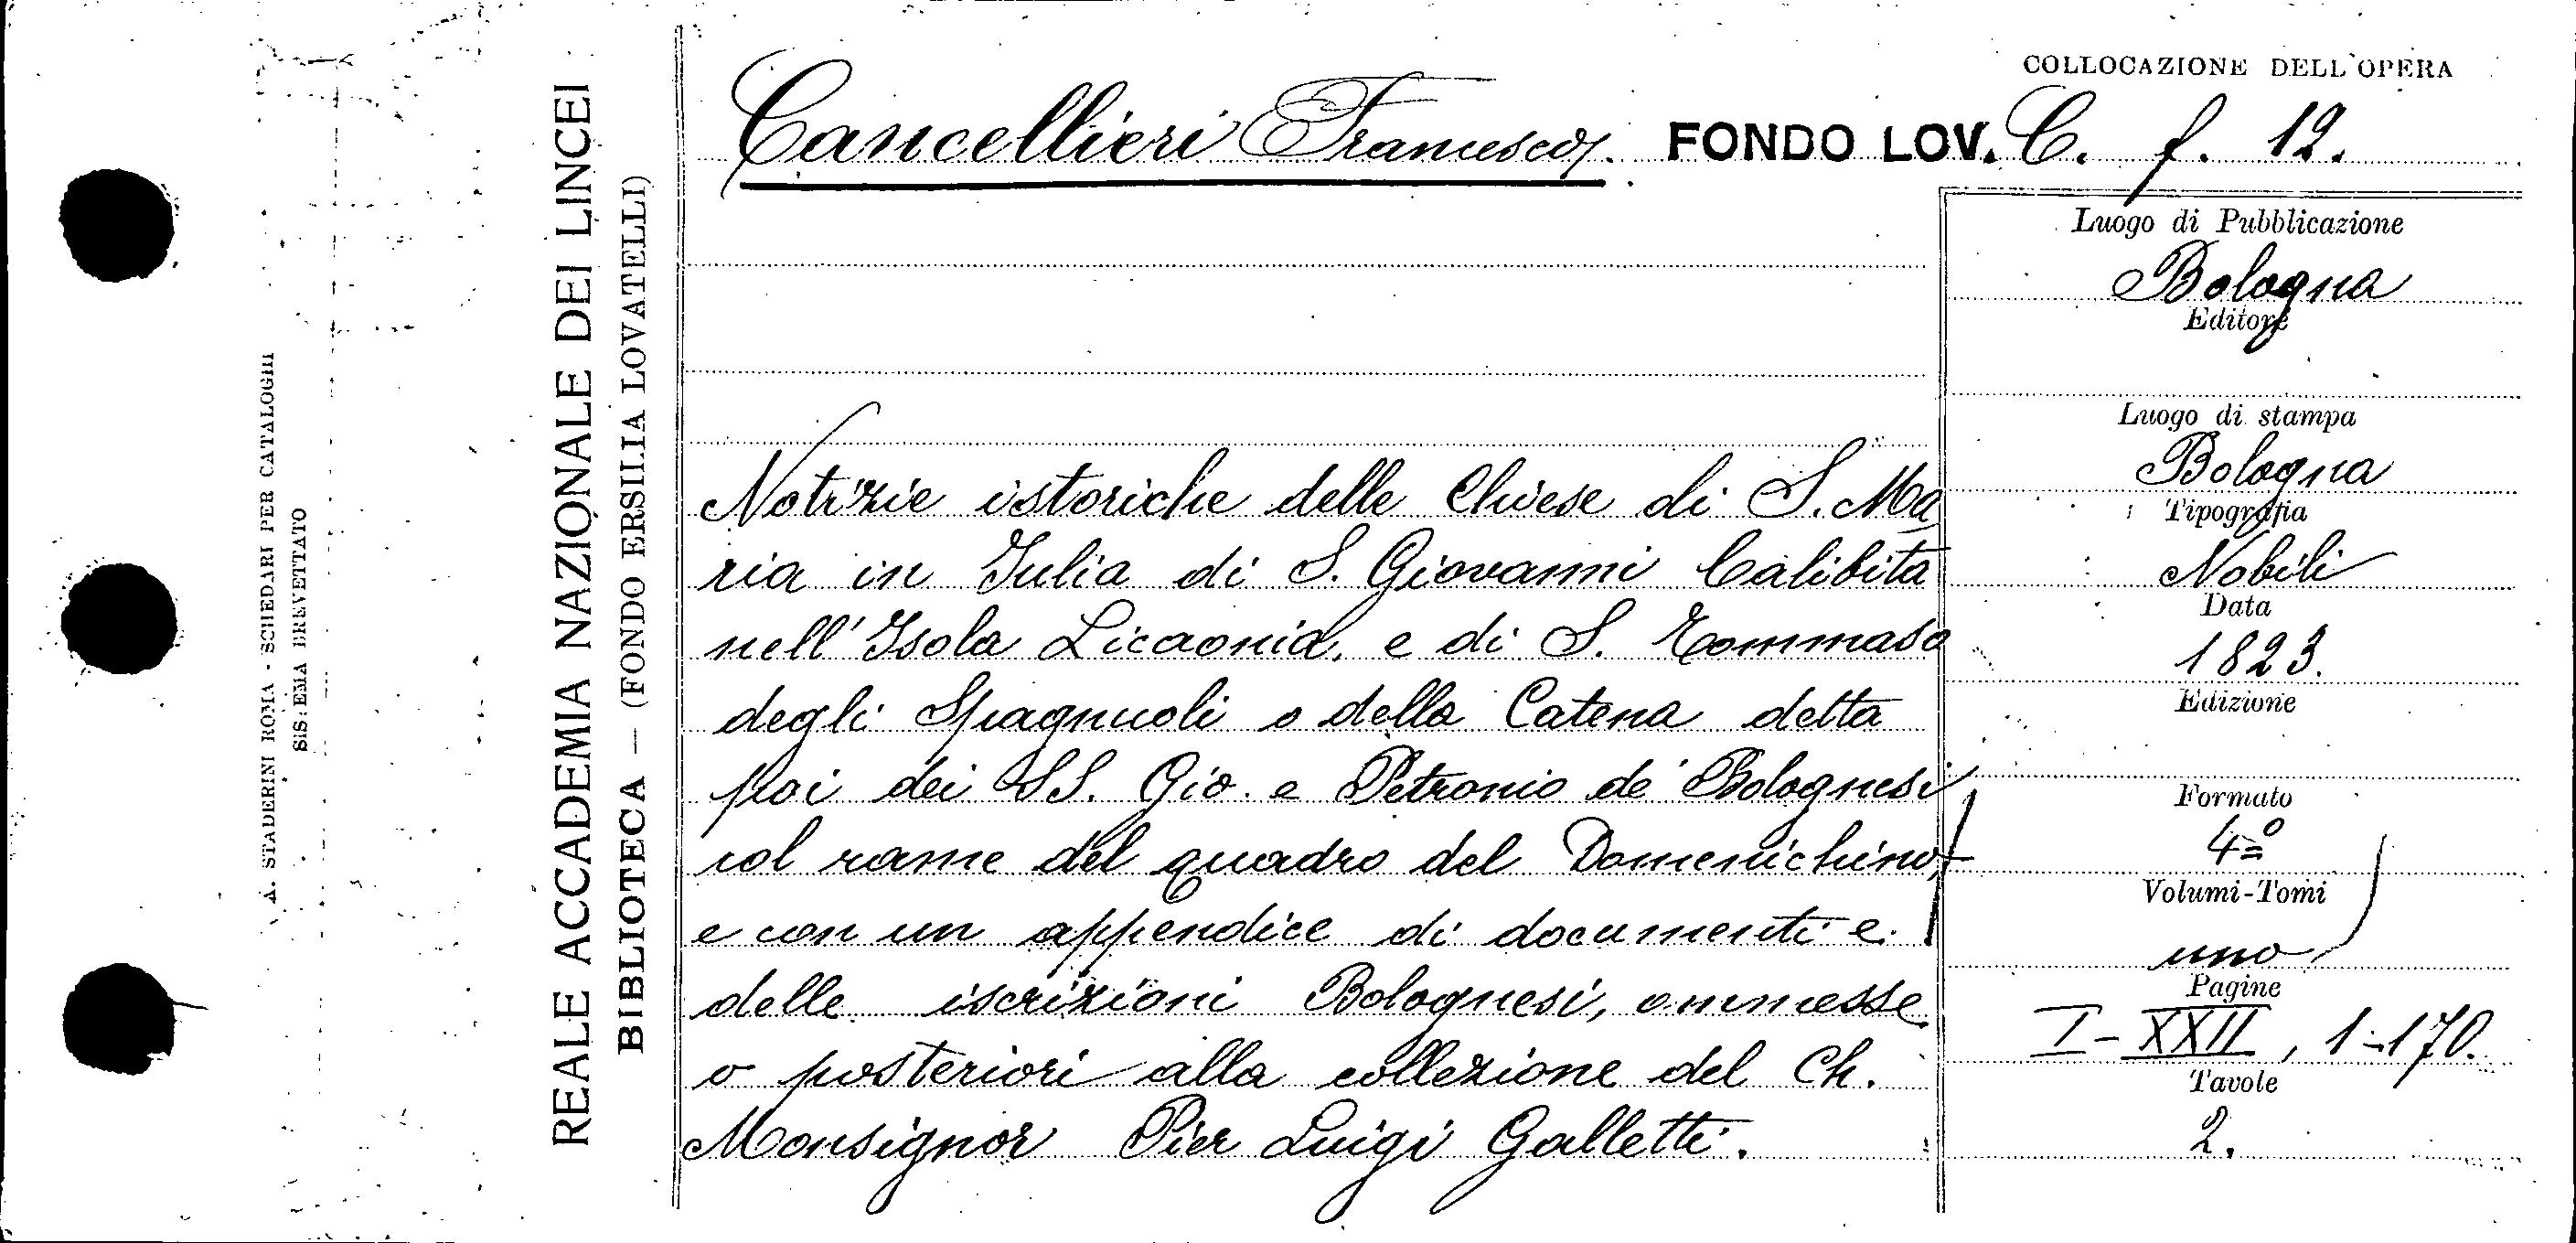 A. STADERINI ROMA - SCHEDARI PER CATALOGHI
SISTEMA BREVETTATO
REALE ACCADEMIA NAZIONALE DEI LINCEI
BIBLIOTECA — (FONDO ERSILIA LOVATELLI)
COLLOCAZIONE DELL'OPERA
Cancellieri Francesco. FONDO LOV. C. f. 12.
Notizie istoriche delle Chiese di S. Ma
ria in Julia di S. Giovanni Calibita
nell'Isola Licaonia, e di S. Tommaso
degli Spagnuoli o della Catena detta
poi dei SS. Gio. e Petronio de' Bolognesi
col rame del quadro del Domenichino,
e con un appendice di documenti e
delle iscrizioni Bolognesi, ommesse
o posteriori alla collezione del Ch.
Monsignor Pier Luigi Galletti.
Luogo di Pubblicazione
Bologna
Editore
Luogo di stampa
Bologna
Tipografia
Nobili
Data
1823.
Edizione
Formato
4º
Volumi-Tomi
uno
Pagine
I-XXII, 1-170.
Tavole
2.